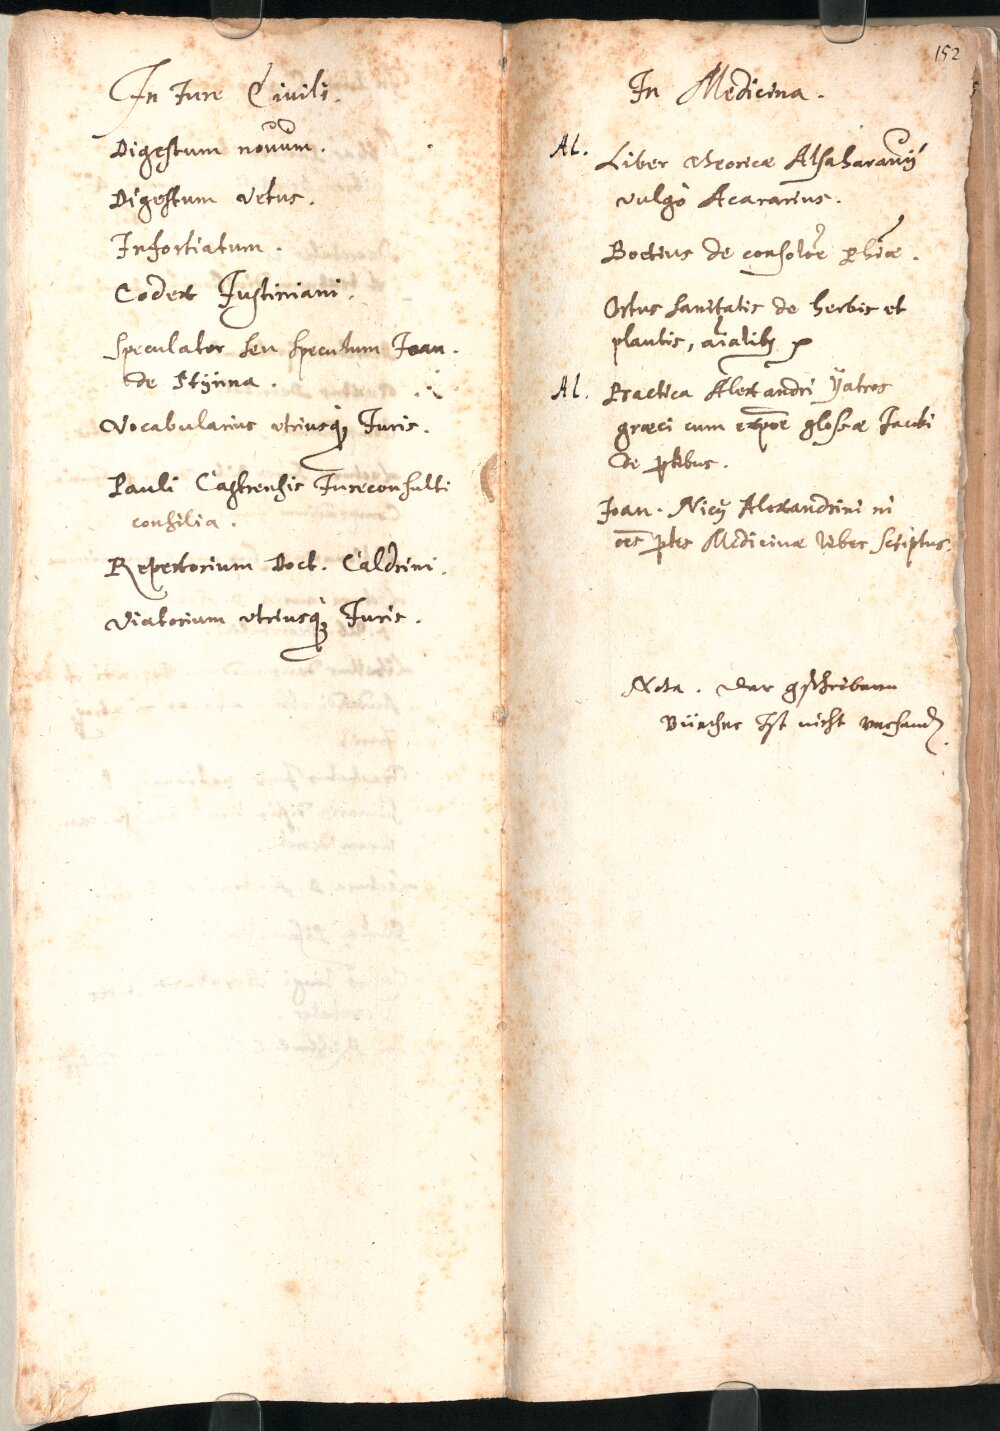 In Jure Ciuili.
Digestum nouum.
Digestum vetus.
Infortiatum.
Codex Justiniani.
Speculator seu speculum Joan.
de Stynna.
Vocabularius vtriusq; Juris.
Pauli Castrensis Jureconsulti
consilia.
Repertorium Doct. Caldrini.
Viatorium vtriusq; Juris.
152
In Medicina.
Al. Liber theoricæ Alsaharauij
vulgò Acararius.
Boetius de consolõe phiæ.
Ortus sanitatis de herbis et
plantis, aĩalibq
Al. Practica Alexandri Yatros
græci cum expõe glossæ Jacobi
de ptibus.
Joan. Nicy Alexandrini ni
oẽs ptes Medicinæ liber scriptus.
Nota. Der gschribenn
Büecher Ist nicht